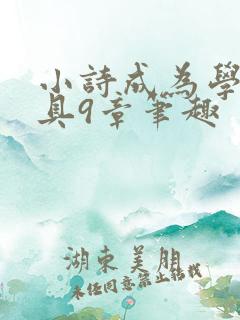 小詩成為學
具9章筆趣
湖東美朋
未任同意禁止转载